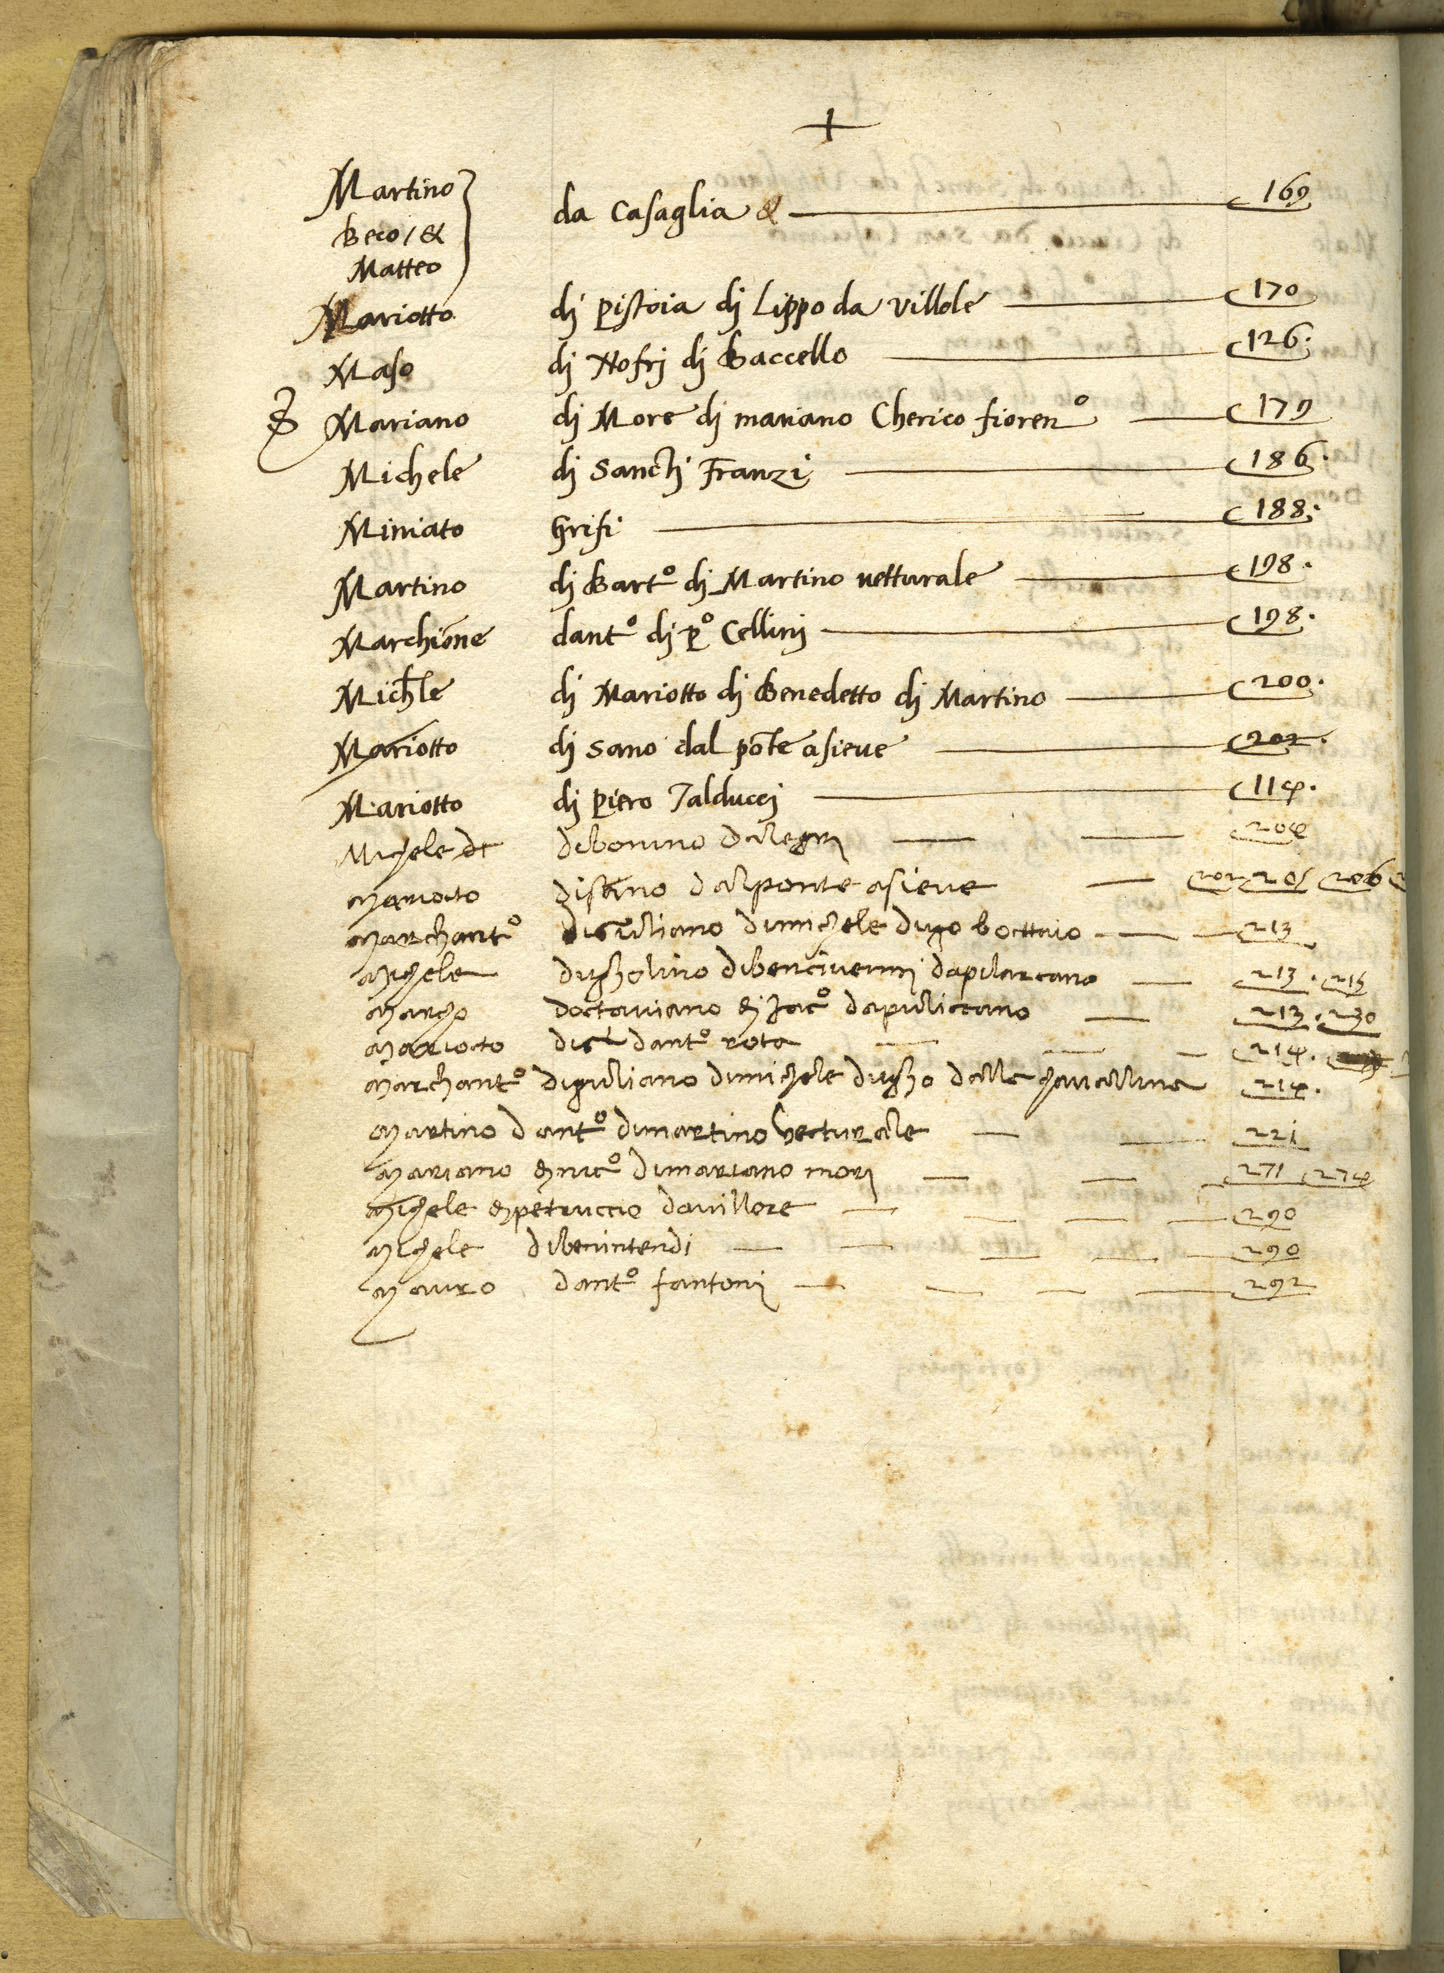 +
Martino
Beco / &
Matteo
da Casaglia & 169
Mariotto di Pistoia di Lippo da Villole 170
Maso di Nofri di Baccello 126.
Mariano di More di mariano Cherico fioren° 179
Michele di Sancti Franzi 186.
Miniato Grifi 188.
Martino di Bart° di Martino vetturale 198.
Marchione dant° di P° Cellini 198.
Michle di Mariotto di Benedetto di Martino 200.
Mariotto di Sano dal pote asieve 202.
Mariotto di Piero Talducci 114.
Michele di bonino dalegri 204
mariocto disano dalponte asieve 202 205 206
marchant° digiuliano dimichele dugo bocttaio 213
michele dugholino dibencivenni dapilarcano 213. 215
marcho doctaviano & Jac° dapiliccano 213. 230
mariocto dant° rota 214.
marchant° digiuliano dimichele dugho dalle chavalline 214.
martino dant° dimartino vecturale 221
mariano & nic° dimariano mori 271 274
michele & petruccio davillore 290
michele dibenintendi 290
mauro dant° fantoni 292